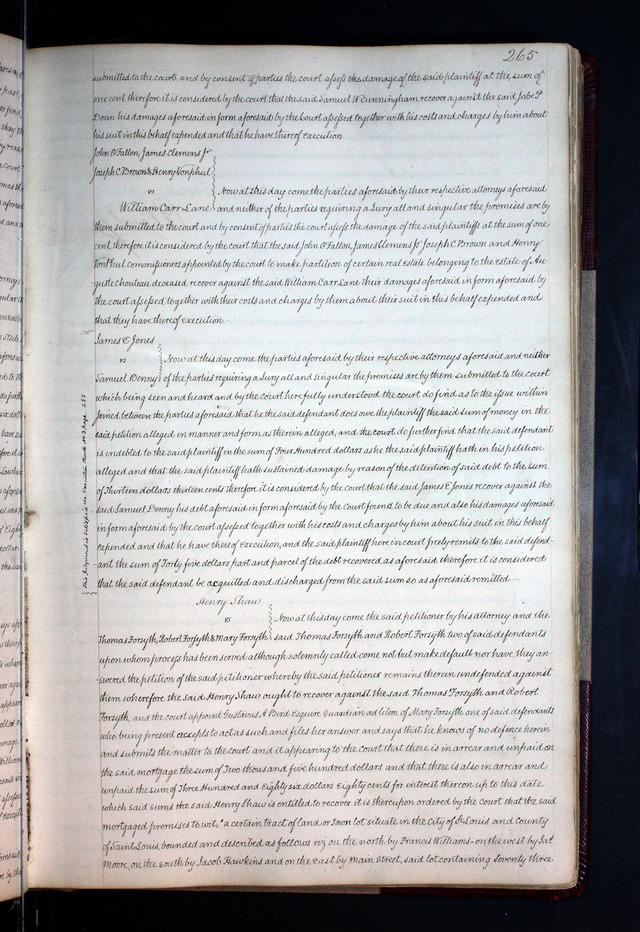 265
submitted to the court and by consent of parties the court assess the damage of the said plaintiff at the sum of
one cent therefore it is considered by the court that the said Samuel W Cunningham recover against the said
Doan his damages aforesaid in form aforesaid by the Court assessed together with his costs and charges by him about
his suit in this behalf expended and that he have thereof execution
John O'Fallon, James Clemens Jr
Joseph C Brown & Henry Vonphul
vs Now at this day come the parties aforesaid by their respective attorneys aforesaid
William Carr Lane and neither of the parties requiring a Jury all and singular the premises are by
them submitted to the court and by consent of parties the court assess the damage of the said plaintiffs at the sum of one
cent therefore it is considered by the court that the said John O'Fallon James Clemens Jr Joseph C Brown and Henry
VonPhul commissioners appointed by the court to make partition of certain real estate belonging to the estate of Au-
guste chouteau deceased recover against the said William Carr Lane their damages aforesaid in form aforesaid by
the court assessed together with their costs and charges by them about their suit in this behalf expended and
that they have thereof execution -
James E Jones
vs Now at this day come the parties aforesaid by their respective attorneys aforesaid and neither
Samuel Denny of the parties requiring a Jury all and singular the premises are by them submitted to the court
which being seen and heard and by the court here fully understood the court do find as to the issue within
Joined between the parties aforesaid, that he the said defendant does owe the plaintiff the said sum of money in the
said petition alleged in manner and form as therein alleged, and the court do further find that the said defendant
is indebted to the said plaintiff in the sum of Four Hundred dollars as he the said plaintiff hath in his petition
alleged and that the said plaintiff hath sustained damage by reason of the detention of said debt to the sum
of Thirteen dollars thirteen cents therefore it is considered by the court that the said James E Jones recover against the
said Samuel Denny his debt aforesaid in form aforesaid by the court found to be due and also his damages aforesaid
in form aforesaid by the court assessed together with his costs and charges by him about his suit in this behalf
expended and that he have thereof execution, and the said plaintiff here in court freely remits to the said defend-
ant the sum of Forty five dollars part and parcel of the debt recovered as aforesaid therefore it is considered
that the said defendant be acquitted and discharged from the said sum so as aforesaid remitted -
This Judgment is satisfied see Execution Book No 3 page
Henry Shaw
vs Now at this day come the said petitioner by his attorney and the
Thomas Forsyth, Robert Forsyth & Mary Forsyth said Thomas Forsyth and Robert Forsyth two of said defendants
upon whom process has been served although solemnly called come not but make default nor have they an-
swered the petition of the said petitioner whereby the said petitioner remains therein undefended against
them wherefore the said Henry Shaw ought to recover against the said Thomas Forsyth and Robert
Forsyth, and the court appoint Gustavus A Bird Esquire Guardian ad litem of Mary Forsyth one of said defendants
who being present accepts to act as such and files her answer and says that he knows of no defence herein
and submits the matter to the court and it appearing to the court that there is in arrear and unpaid on
the said mortgage the sum of Two thousand five hundred dollars and that there is also in arrear and
unpaid the sum of Three Hundred and Eighty six dollars Eighty cents for interest thereon up to this date
which said sums the said Henry Shaw is entitled to recover it is thereupon ordered by the court that the said
mortgaged premises to wit, "a certain tract of land or Town lot situate in the City of St Louis and County
of Saint Louis, bounded and described as follows viz on the north by Francis Williams - on the west by Jas
Moore, on the south by Jacob Hawkins and on the east by Main Street, said lot containing Seventy three